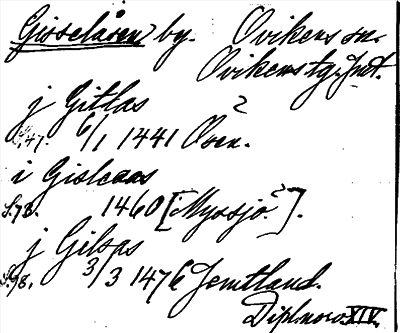 Gisselåsen by. Ovikens sn.
Ovikens tg. Jmt.
j Gitlas ?
S. 47. 6/1 1441 Oven.
i Gisleaas
S. 73. 1460 [Myssjö?].
j Gilsas
S. 98. 3/3 1476 Jemtland.
Dipl. norv. XIV.